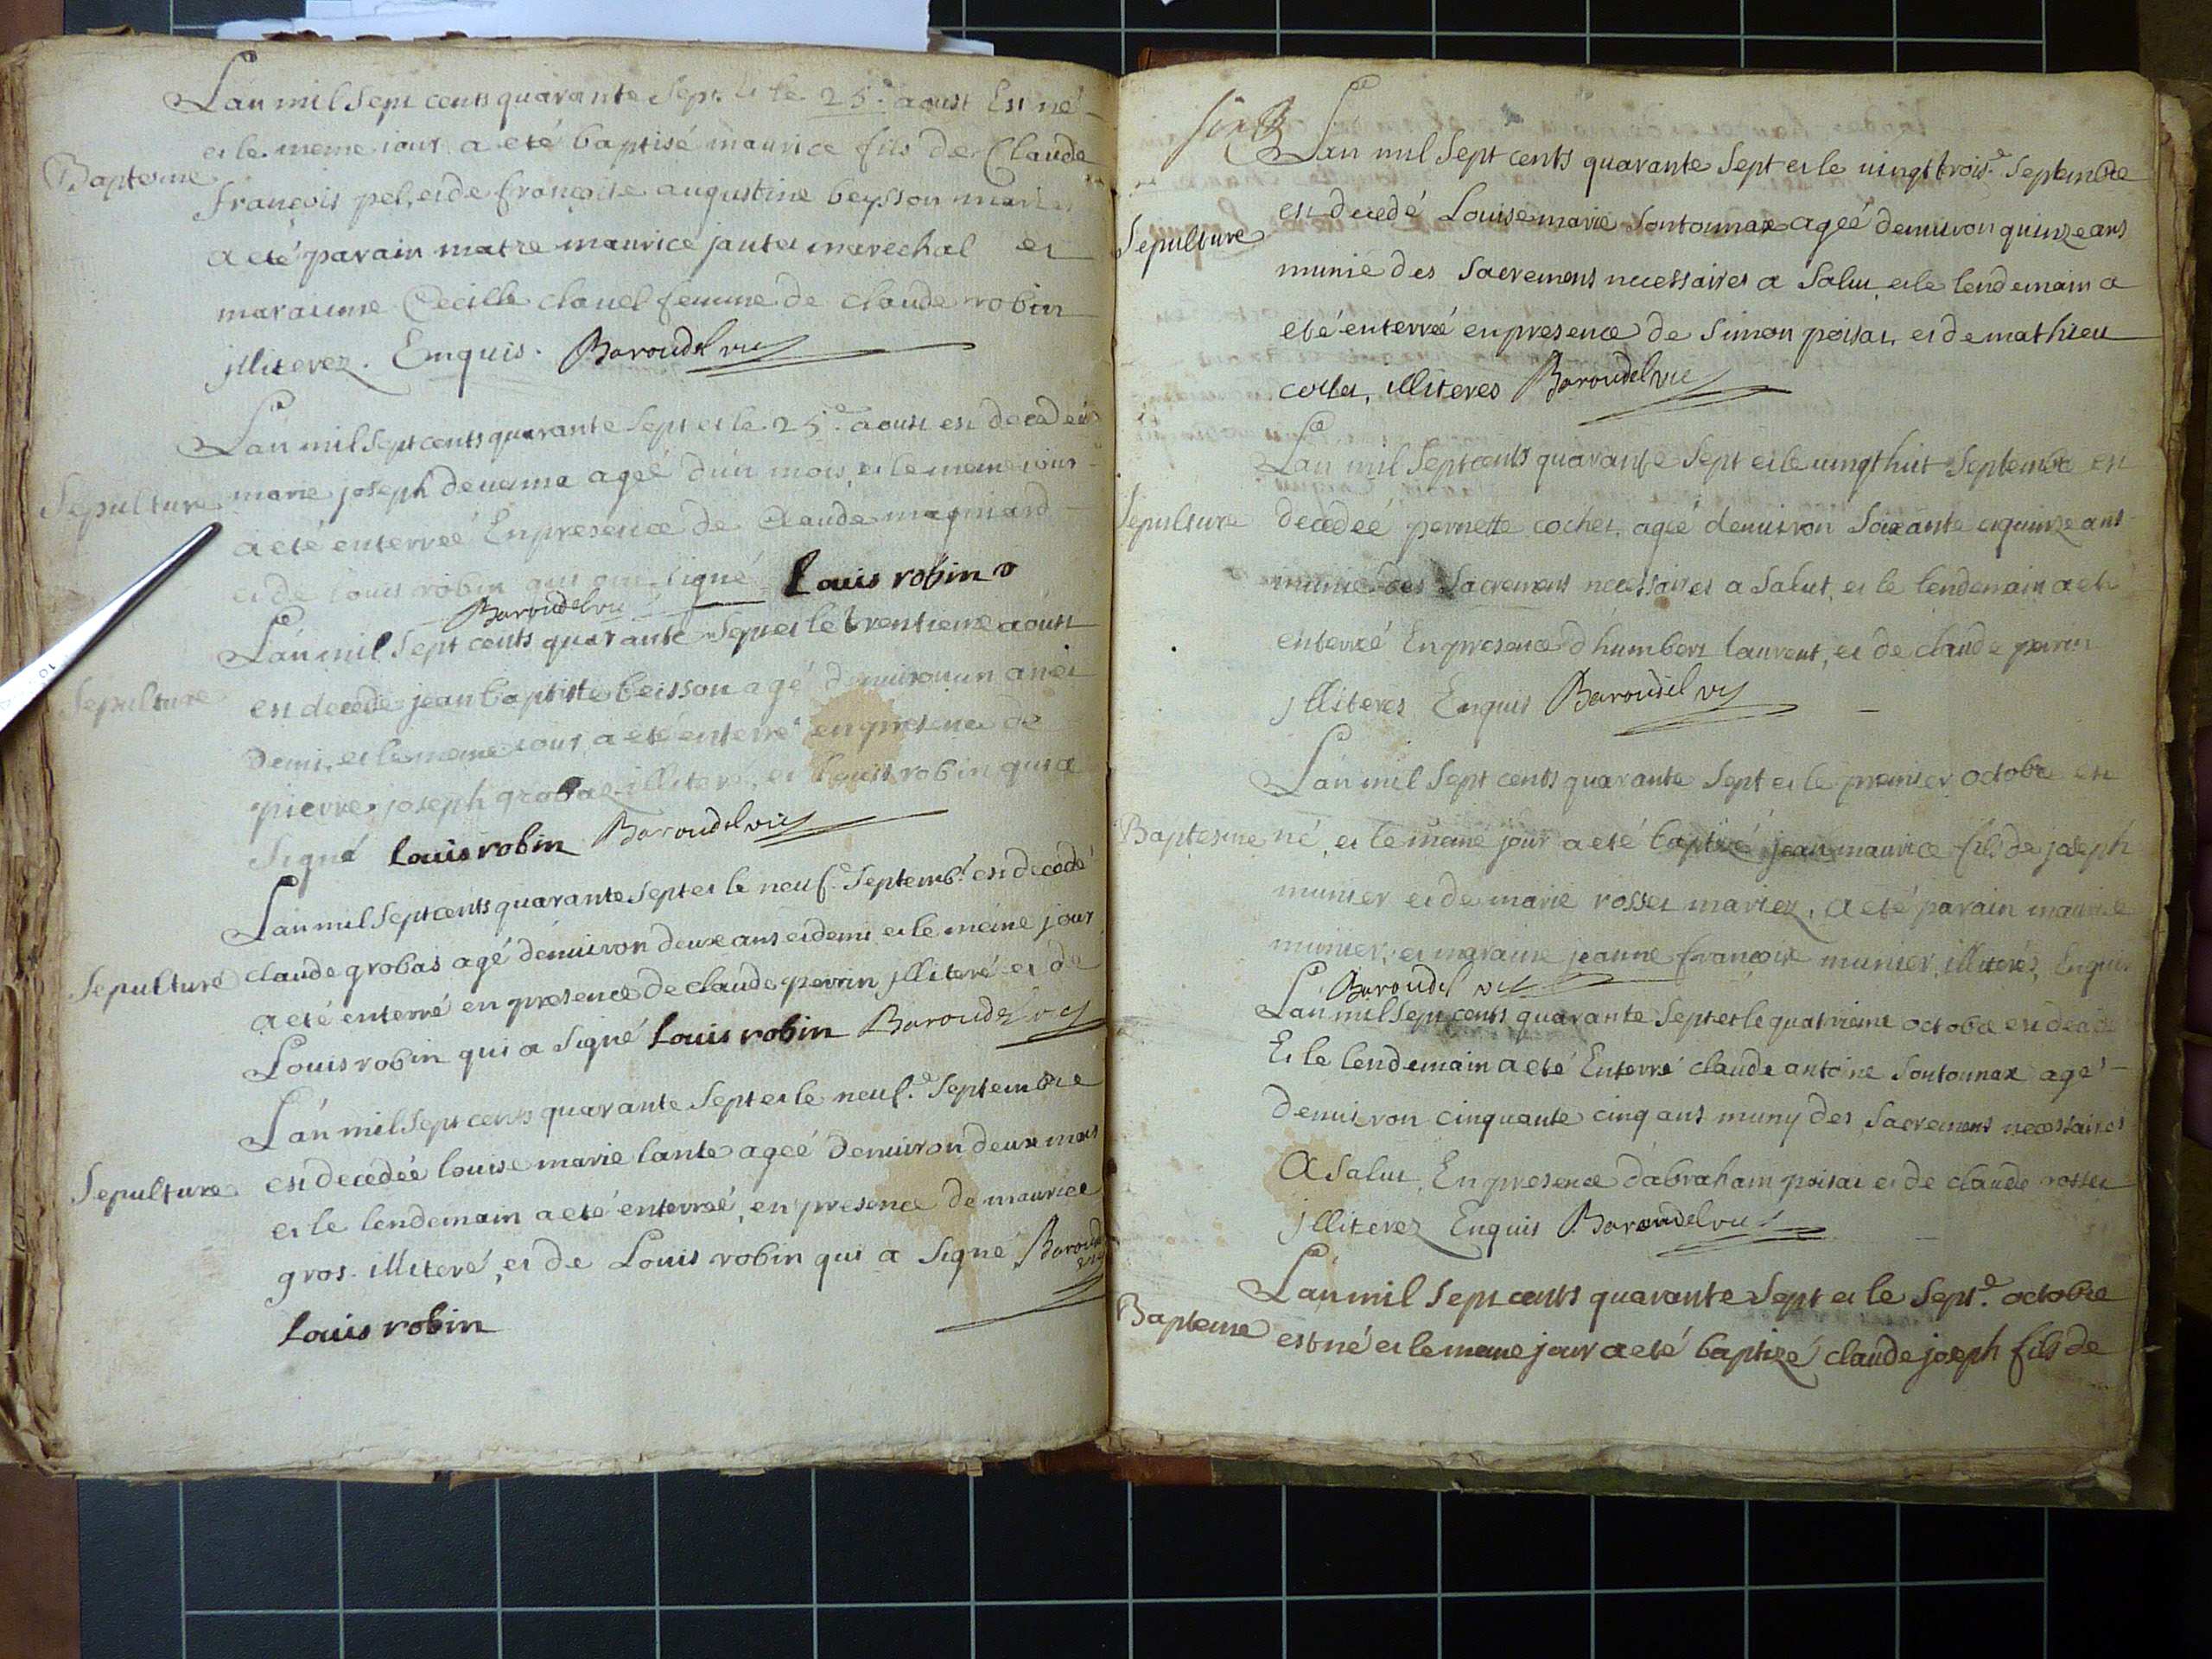 L'an mil sept cents quarante sept et le 25.e aoust Est né
Baptesme
et le meme iour a eté baptisé maurice fils de Claude
françois pel, et de françoise augustine beysson mariez
a eté parain matre maurice jantet marechal et
maraime Cecille clauel femme de claude robin
jlliterez. Enquis. Baroudel vic
L'an mil sept cents quarante sept et le 25.e aoust est decedeé
Sepulture
marie joseph deuerma ageé d'un mois, et le meme iour
a eté enterreé En presence de Claude magniard
et de louis robin qui ont signé Louis robin
Baroudel vic
L'an mil sept cents quarante sept et le trentieme aoust
Sepulture
est decede jean baptiste beisson agé d'enuiron un an et
demi, et le meme iour a eté enterré en presence de
pierre joseph grobas illiteré, et louis robin qui a
signé Louis robin Baroudel vic
L'an mil sept cents quarante sept et le neuf.e septemb.e est decedé
Sepulture
claude grobas agé d'enuiron deux ans et demi et le méme jour
a eté enterré en presence de claude perrin jlliteré et de
Louis robin qui a signé Louis robin Baroudel vic
L'an mil sept cents quarante sept et le neuf.e septembre
Sepulture
est decédée louise marie lante ageé d'enuiron deux mois
et le lendemain a eté enterreé, en presence de maurice
gros illiteré, et de Louis robin qui a signé Baroudel vic
Louis robin
L'an mil sept cents quarante sept et le uingt trois.e septembre
Sepulture
est decedé Louise marie sontonnax ageé d'enuiron quinze ans
munie des sacremens necessaires a salut et le lendemain a
eté enterreé en presence de simon poisat, et de mathieu
collet, illiteres Baroudel vic
L'an mil sept cents quarante sept et le uingt huit septembre est
Sepulture
decedeé pernette cochet, ageé d'enuiron soixante et quinze ans
munie des sacremens necessaires a salut, et le lendemain a eté
enterreé En presence d'humbert laurent, et de claude perrin
jlliteres Enquis Baroudel vic
L'an mil sept cents quarante sept et le premier octobre est
Baptesme
né, et le meme jour a eté baptizé jean maurice fils de joseph
munier et de marie rosset mariez, a eté parain maurice
munier, et maraine jeanne françoise munier, illiterez, Enquis
Baroudel vic
L'an mil sept cents quarante sept et le quatrieme octobre est decedé
Et le lendemain a eté Enterré claude antoine sontonnax agé
d'enuiron cinquante cinq ans muny des sacremens necessaires
a salut, En presence d'abraham poisat et de claude rosset
jlliterez Enquis Baroudel vic
L'an mil sept cents quarante sept et le sept.e octobre
Bapteme
est né et le meme jour a eté baptizé claude joseph fils de